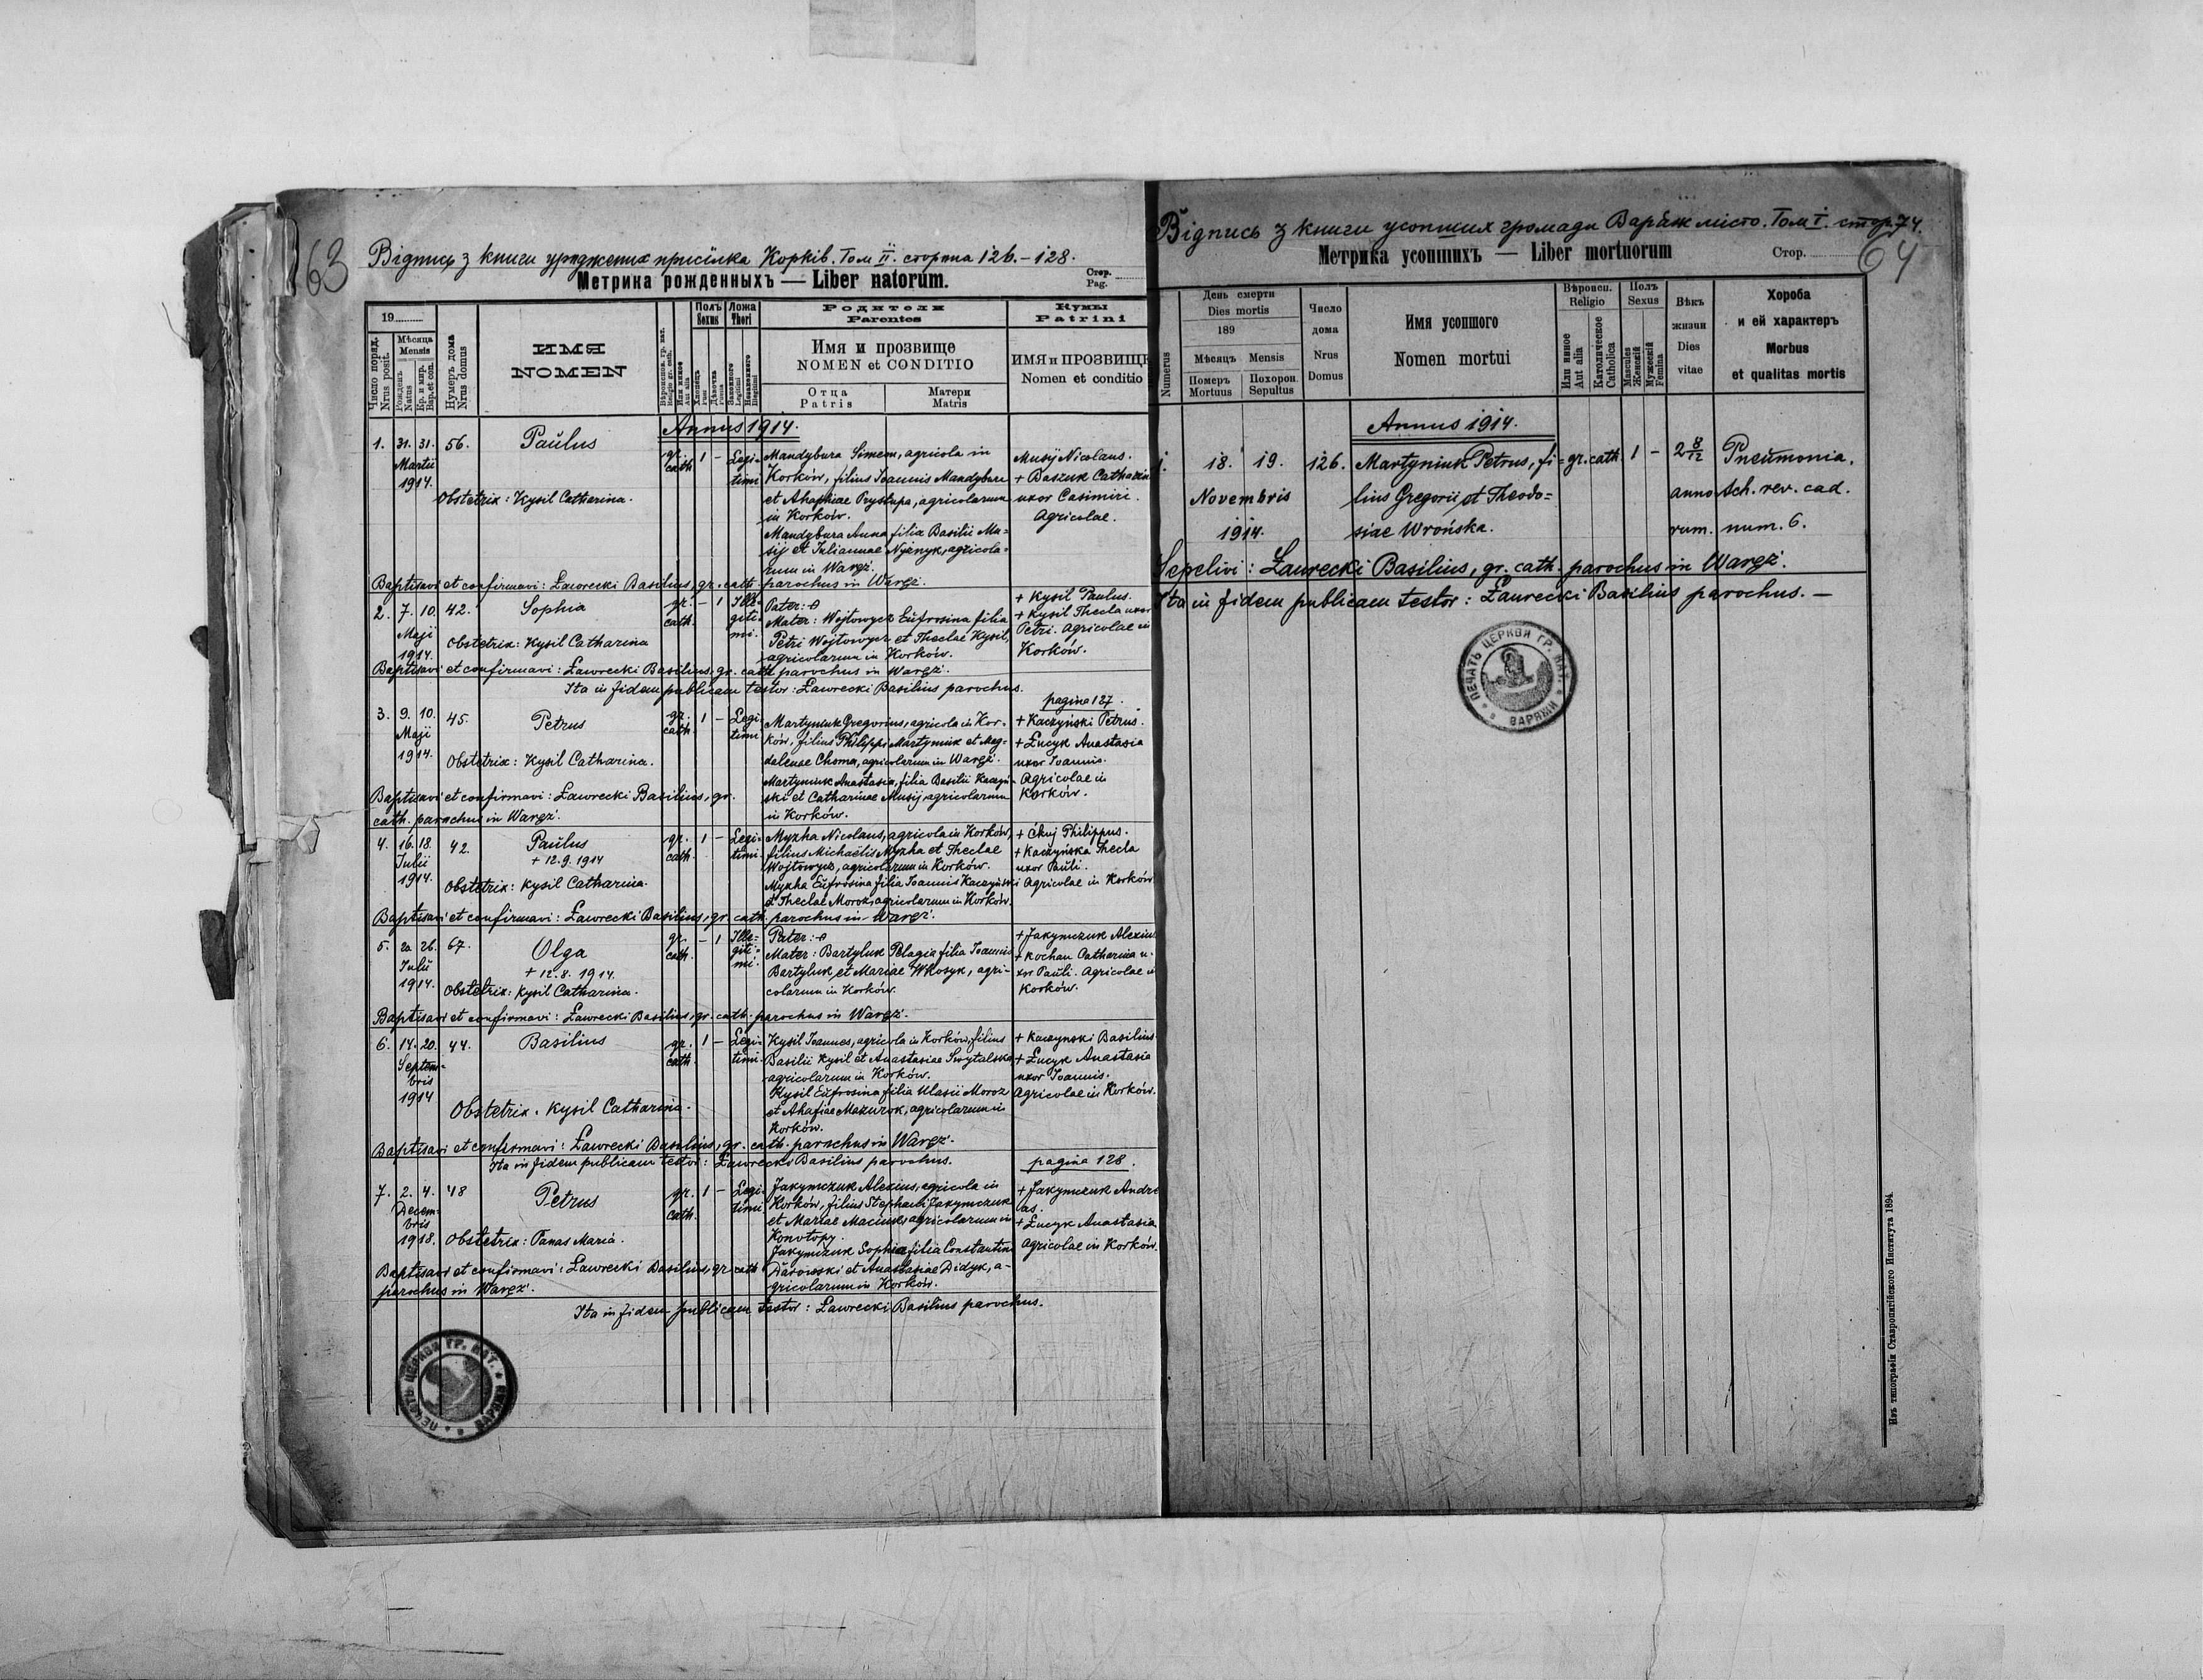 63
Відпись з книги уроджених присілка Корків. Том II. сторона 126.-128.
Метрика рожденныхъ — Liber natorum.
Стор.
Pag.
19
Число поряд.
Nrus posit.
Мѣсяца
Mensis
Рожденъ
Natus
Кр. и мир.
Bap. et con.
Нумеръ дома
Nrus domus
ИМЯ
NOMEN
Или инное
Aut alia
Полъ
Sexus
Ложа
Thori
Родители
Parentes
Имя и прозвище
NOMEN et CONDITIO
Отца
Patris
Матери
Matris
Кумы
Patrini
ИМЯ и ПРОЗВИЩЕ
Nomen et conditio
Annus 1914.
1. 31. 31. 56. Paulus gr. cath. 1 - Legitimi
Martii
1914.
Obstetrix: Kysil Catherina.
Mandybura Simeon, agricola in
Korków, filius Ioannis Mandybura
et Ahaphiae Prystupa, agricolarum
in Korków.
Mandybura Anna filia Basilii Mu=
sij et Iuliannae Nyznyk, agricola=
rum in Waręż.
Musij Nicolaus.
+ Baszuk Catharina
uxor Casimiri.
Agricolae.
Baptisavi et confirmavi: Ławrecki Basilius, gr. cath. parochus in Waręż.
2. 7. 10. 42. Sophia gr. cath. - 1 Illegitimi.
Maji
1914.
Obstetrix: Kysil Catharina
Pater: 
Mater: Wojtowycz Eufrosina filia
Petri Wojtowycz et Theclae Kysil,
agricolarum in Korków.
+ Kysil Paulus.
+ Kysil Thecla uxor
Petri. Agricolae in
Korków.
Baptisavi et confirmavi: Ławrecki Basilius, gr. cath parochus in Waręż.
Ita in fidem publicam testor: Ławrecki Basilius parochus.
pagina 127.
3. 9. 10. 45. Petrus gr. cath. 1 - Legitimi
Maji
1914.
Obstetrix: Kysil Catharina.
Martyniuk Gregorius, agricola in Kor-
ków, filius Philippi Martyniuk et Mag=
dalenae Choma, agricolarum in Waręż.
Martyniuk Anastasia, filia Basilii Kaczyń-
ski et Catharinae Musij, agricolarum
in Korków.
+ Kaczyński Petrus.
+ Łucyk Anastasia
uxor Ioannis.
Agricolae in
Korków.
Baptisavi et confirmavi: Ławrecki Basilius, gr.
cath. parochus in Waręż.
4. 16. 18. 42. Paulus gr. cath. 1 - Legitimi.
Iulii
1914.
+ 12.9.1914
Obstetrix: Kysil Catharina.
Myzha Nicolaus, agricola in Korków,
filius Michaëlis Myzha et Theclae
Wojtowycz, agricolarum in Korków.
Myzha Eufrosina filia Ioannis Kaczyński
et Theclae Moroz, agricolarum in Korków.
+ Ćkuj Philippus.
+ Kaczyńska Thecla
uxor Pauli.
Agricolae in Korków
Baptisavi et confirmavi: Ławrecki Basilius, gr. cath. parochus in Waręż.
5. 20. 26. 67. Olga gr. cath. - 1 Illegitimi.
Iulii
1914.
+ 12.8.1914.
Obstetrix: Kysil Catharina.
Pater: 
Mater: Bartyluk Pelagia filia Ioannis
Bartyluk et Mariae Wlosyk, agri-
colarum in Korków.
+ Jakymczuk Alexius
+ Kochan Catharina u-
xor Pauli. Agricolae in
Korków.
Baptisavi et confirmavi: Ławrecki Basilius, gr. cath. parochus in Waręż.
6. 14. 20. 44. Basilius gr. cath 1 - Legitimi.
Septem-
bris
1914
Obstetrix. Kysil Catharina.
Kysil Ioannes, agricola in Korków, filius
Basilii Kysil et Anastasiae Swytalska
agricolarum in Korków.
Kysil Eufrosina filia Ulasii Moroz
et Ahafiae Mazurok, agricolarum in
Korków.
+ Kaczynski Basilius
+ Łucyk Anastasia
uxor Ioannis.
Agricolae in Korków.
Baptisavi et confirmavi: Ławrecki Basilius, gr. cath. parochus in Waręż.
Ita in fidem publicam testor: Ławrecki Basilius parochus.
pagina 128.
7. 2. 4. 48 Petrus gr. cath. 1 - Legitimi
Decem-
bris
1918.
Obstetrix: Panas Maria.
Jakymczuk Alexius, agricola in
Korków, filius Stephani Jakymczuk
et Mariae Maciuk, agricolarum in
Konotopy.
Jakymczuk Sophia filia Constantini
Darowski et Anastasiae Didyk, a-
gricolarum in Korków.
+ Jakymczuk Andre
as.
+ Łucyk Anastasia
Agricolae in Korków.
Baptisavi et confirmavi: Ławrecki Basilius, gr. cath
parochus in Waręż.
Ita in fidem publicam testor: Ławrecki Basilius parochus.
ПЕЧАТЬ ЦЕРКВИ ГР. КАТ. ВАРЯЖИ
Відпись з книги усопших громади Варяж місто. Том I. стор. 74.
64
Метрика усопшихъ — Liber mortuorum
Стор.
Numerus
День смерти
Dies mortis
189
Мѣсяцъ Mensis
Померъ
Mortuus
Похорон.
Sepultus
Число
дома
Nrus
Domus
Имя усопшого
Nomen mortui
Вѣроиси.
Religio
Или инное
Aut alia
Католическое
Catholica
Полъ
Sexus
Mascules
Женскій
Мужескій
Femina
Вѣкъ
жизни
Dies
vitae
Хороба
и ей характеръ
Morbus
et qualitas mortis
Annus 1914.
1. 18. 19. 126. Martyniuk Petrus, fi= gr. cath. 1 - 2 8/12 Pneumonia.
Novembris lius Gregorii et Theodo= anno Ach. rev. cad.
1914. siae Wrońska. rum. num. 6.
Sepelivi: Ławrecki Basilius, gr. cath. parochus in Waręż.
Ita in fidem publicam testor: Ławrecki Basilius parochus. —
ПЕЧАТЬ ЦЕРКВИ ГР. КАТ. ВАРЯЖИ
Изъ типографіи Ставропигійского Института 1894.